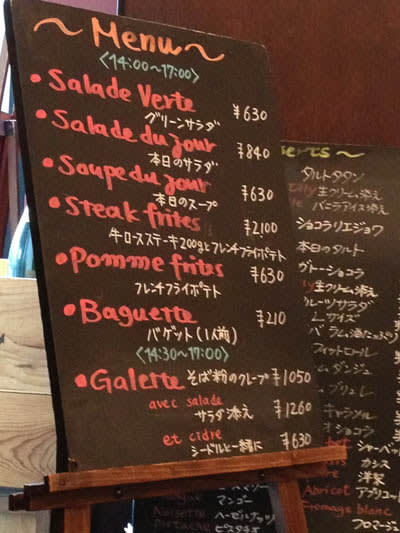 ~ Menu ~
<14:00~17:00>
• Salade Verte
グリーンサラダ ¥630
• Salade du jour
本日のサラダ ¥840
• Soupe du jour
本日のスープ ¥630
• Steak frites
牛ロースステーキ200gとフレンチフライポテト ¥2100
• Pomme frites ¥630
フレンチフライポテト
• Baguette ¥210
バゲット(1人前)
<14:30~17:00>
• Galette そば粉のクレープ ¥1050
avec salade
サラダ添え ¥1260
et cidre
シードルと一緒に ¥630
erts ~
タルトタタン
生クリーム添え
バニラアイス添え
ショコラリエジョワ
本日のタルト
ガトーショコラ
生クリーム添え
フルーツサラダ
Lサイズ
ラム酒たっぷり
フィットロール
ムダンジュ
ブリュレ
キャラメル
オショコラ
シャーベット
カシス
洋梨
Abricot アプリコット
Fromage blanc
フロマージュ
マンゴー
Noisette ヘーゼルナッツ
Pistache ピスタチオ